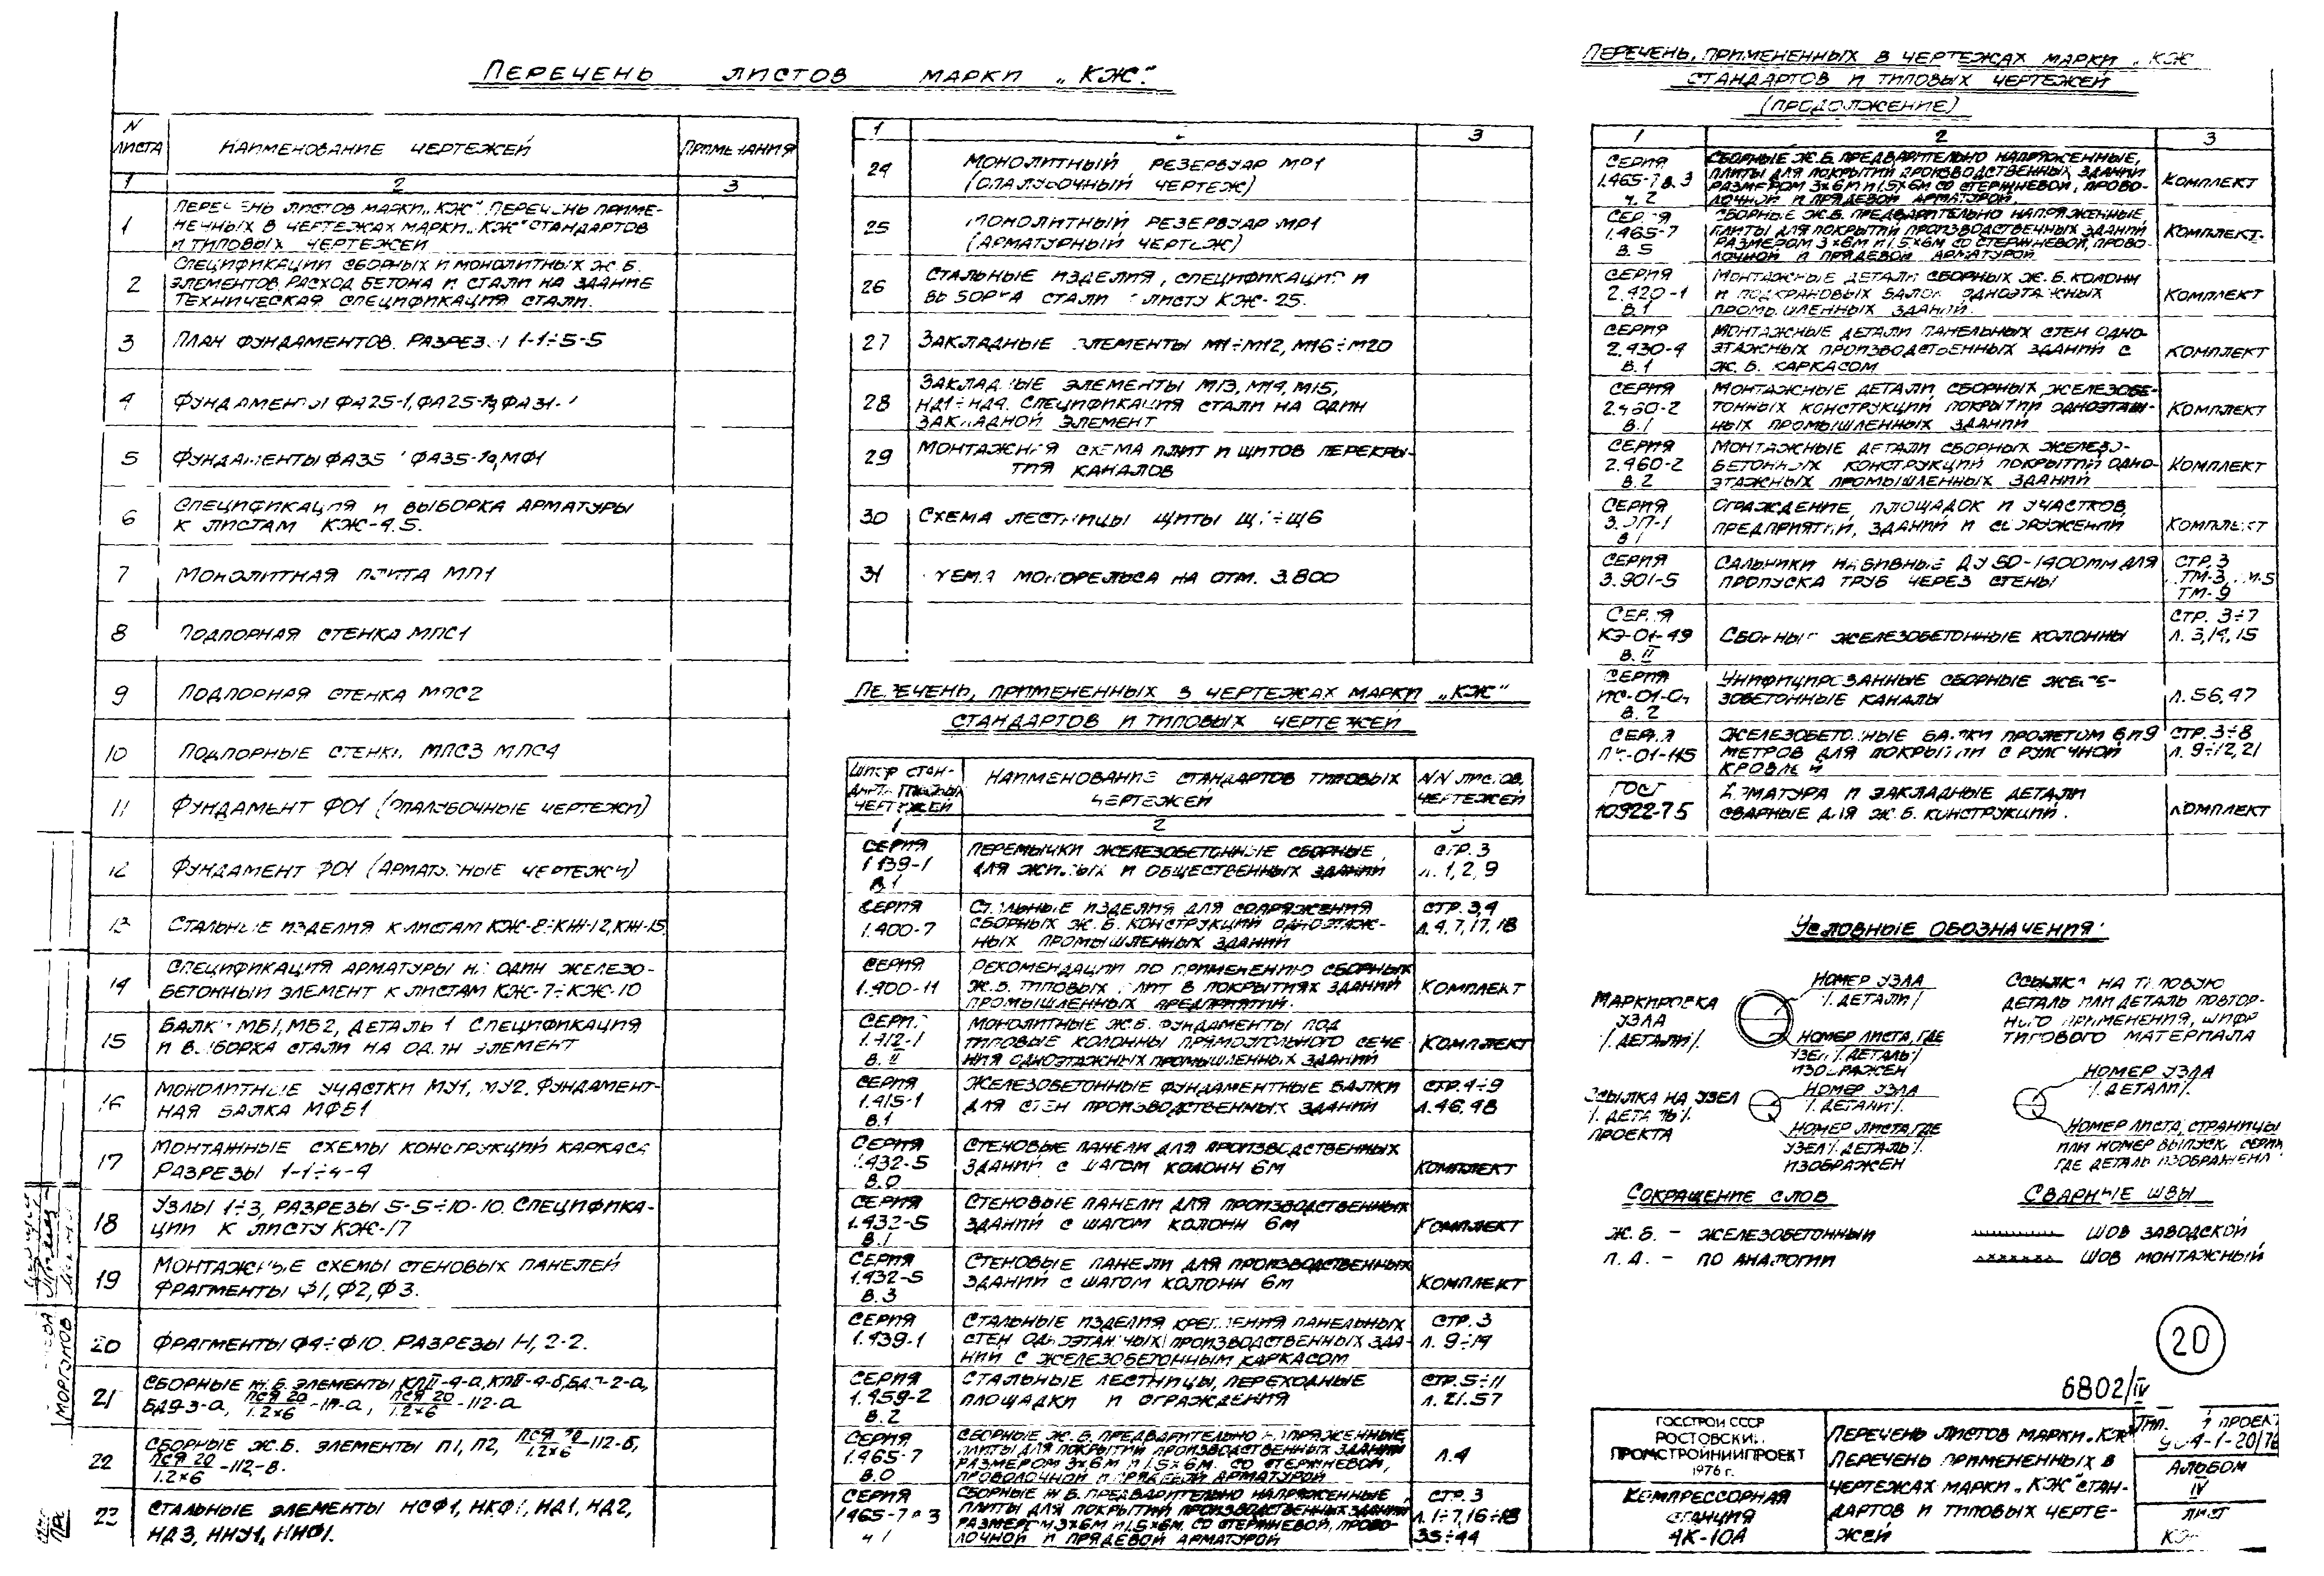 ПЕРЕЧЕНЬ ЛИСТОВ МАРКИ „КЖ“.
N ЛИСТА
НАИМЕНОВАНИЕ ЧЕРТЕЖЕЙ
ПРИМЕЧАНИЯ
1 2 3
1 ПЕРЕЧЕНЬ ЛИСТОВ МАРКИ „КЖ“ ПЕРЕЧЕНЬ ПРИМЕ-
НЕННЫХ В ЧЕРТЕЖАХ МАРКИ „КЖ“ СТАНДАРТОВ
И ТИПОВЫХ ЧЕРТЕЖЕЙ
2 СПЕЦИФИКАЦИИ СБОРНЫХ И МОНОЛИТНЫХ Ж.Б.
ЭЛЕМЕНТОВ. РАСХОД БЕТОНА И СТАЛИ НА ЗДАНИЕ
ТЕХНИЧЕСКАЯ СПЕЦИФИКАЦИЯ СТАЛИ.
3 ПЛАН ФУНДАМЕНТОВ. РАЗРЕЗЫ 1-1÷5-5
4 ФУНДАМЕНТЫ ФА25-1, ФА25-1а, ФА31-1
5 ФУНДАМЕНТЫ ФА35 ФА35-1а, МФ1
6 СПЕЦИФИКАЦИЯ И ВЫБОРКА АРМАТУРЫ
К ЛИСТАМ КЖ-4,5.
7 МОНОЛИТНАЯ ПЛИТА МП1
8 ПОДПОРНАЯ СТЕНКА МПС1
9 ПОДПОРНАЯ СТЕНКА МПС2
10 ПОДПОРНЫЕ СТЕНКИ МПС3 МПС4
11 ФУНДАМЕНТ ФО1 (ОПАЛУБОЧНЫЕ ЧЕРТЕЖИ)
12 ФУНДАМЕНТ ФО1 (АРМАТУРНЫЕ ЧЕРТЕЖИ)
13 СТАЛЬНЫЕ ИЗДЕЛИЯ К ЛИСТАМ КЖ-8÷КЖ-12, КЖ-15,
14 СПЕЦИФИКАЦИЯ АРМАТУРЫ НА ОДИН ЖЕЛЕЗО-
БЕТОННЫЙ ЭЛЕМЕНТ К ЛИСТАМ КЖ-7÷КЖ-10
15 БАЛКИ МБ1, МБ2, ДЕТАЛЬ 1 СПЕЦИФИКАЦИЯ
И ВЫБОРКА СТАЛИ НА ОДИН ЭЛЕМЕНТ
16 МОНОЛИТНЫЕ УЧАСТКИ МУ1, МУ2. ФУНДАМЕНТ-
НАЯ БАЛКА МФБ1
17 МОНТАЖНЫЕ СХЕМЫ КОНСТРУКЦИЙ КАРКАСА
РАЗРЕЗЫ 1-1÷4-4
18 УЗЛЫ 1÷3, РАЗРЕЗЫ 5-5÷10-10. СПЕЦИФИКА-
ЦИИ К ЛИСТУ КЖ-17
19 МОНТАЖНЫЕ СХЕМЫ СТЕНОВЫХ ПАНЕЛЕЙ
ФРАГМЕНТЫ Ф1, Ф2, Ф3.
20 ФРАГМЕНТЫ Ф4÷Ф10. РАЗРЕЗЫ 1-1, 2-2.
21 СБОРНЫЕ Ж.Б. ЭЛЕМЕНТЫ КПII-4-а, КПII-4-б, -2-а,
БД9-3-а, ПСЯ 20/1.2×6 -111-а, ПСЯ 20/1.2×6 -112-а
22 СБОРНЫЕ Ж.Б. ЭЛЕМЕНТЫ П1, П2, ПСЯ 20/1.2×6 -112-б,
ПСЯ 20/1.2×6 -112-в.
23 СТАЛЬНЫЕ ЭЛЕМЕНТЫ НСФ1, НКФ1, НД1, НД2,
НД3, ННУ1, ННФ1.
1 2 3
24 МОНОЛИТНЫЙ РЕЗЕРВУАР МР1
(ОПАЛУБОЧНЫЙ ЧЕРТЕЖ)
25 МОНОЛИТНЫЙ РЕЗЕРВУАР МР1
(АРМАТУРНЫЙ ЧЕРТЕЖ)
26 СТАЛЬНЫЕ ИЗДЕЛИЯ, СПЕЦИФИКАЦИЯ И
ВЫБОРКА СТАЛИ К ЛИСТУ КЖ-25.
27 ЗАКЛАДНЫЕ ЭЛЕМЕНТЫ М1÷М12, М16÷М20
28 ЗАКЛАДНЫЕ ЭЛЕМЕНТЫ М13, М14, М15,
НД1÷НД4. СПЕЦИФИКАЦИЯ СТАЛИ НА ОДИН
ЗАКЛАДНОЙ ЭЛЕМЕНТ
29 МОНТАЖНАЯ СХЕМА ПЛИТ И ЩИТОВ ПЕРЕКРЫ-
ТИЯ КАНАЛОВ
30 СХЕМА ЛЕСТНИЦЫ ЩИТЫ Щ1÷Щ6
31 СХЕМА МОНОРЕЛЬСА НА ОТМ. 3.800
ПЕРЕЧЕНЬ, ПРИМЕНЕННЫХ В ЧЕРТЕЖАХ МАРКИ „КЖ“
СТАНДАРТОВ И ТИПОВЫХ ЧЕРТЕЖЕЙ
ШИФР СТАН-
ЧЕРТЕЖЕЙ
НАИМЕНОВАНИЕ СТАНДАРТОВ ТИПОВЫХ
ЧЕРТЕЖЕЙ
NN ЛИСТОВ,
ЧЕРТЕЖЕЙ
1 2 3
СЕРИЯ 1.139-1 В.1 ПЕРЕМЫЧКИ ЖЕЛЕЗОБЕТОННЫЕ СБОРНЫЕ
ДЛЯ ЖИЛЫХ И ОБЩЕСТВЕННЫХ ЗДАНИЙ
СТР. 3 Л. 1, 2, 9
СЕРИЯ 1.400-7 СТАЛЬНЫЕ ИЗДЕЛИЯ ДЛЯ СОПРЯЖЕНИЯ
СБОРНЫХ Ж.Б. КОНСТРУКЦИЙ ОДНОЭТАЖ-
НЫХ ПРОМЫШЛЕННЫХ ЗДАНИЙ
СТР. 3,4 Л. 4, 7, 17, 18
СЕРИЯ 1.400-11 РЕКОМЕНДАЦИИ ПО ПРИМЕНЕНИЮ СБОРНЫХ
Ж.Б. ТИПОВЫХ ПЛИТ В ПОКРЫТИЯХ ЗДАНИЙ
ПРОМЫШЛЕННЫХ ПРЕДПРИЯТИЙ.
КОМПЛЕКТ
СЕРИЯ 1.412-1 В. II МОНОЛИТНЫЕ Ж.Б. ФУНДАМЕНТЫ ПОД
ТИПОВЫЕ КОЛОННЫ ПРЯМОУГОЛЬНОГО СЕЧЕ-
НИЯ ОДНОЭТАЖНЫХ ПРОМЫШЛЕННЫХ ЗДАНИЙ
КОМПЛЕКТ
СЕРИЯ 1.415-1 В.1 ЖЕЛЕЗОБЕТОННЫЕ ФУНДАМЕНТНЫЕ БАЛКИ
ДЛЯ СТЕН ПРОИЗВОДСТВЕННЫХ ЗДАНИЙ
СТР. 4÷9 Л. 46, 48
СЕРИЯ 1.432-5 В.0 СТЕНОВЫЕ ПАНЕЛИ ДЛЯ ПРОИЗВОДСТВЕННЫХ
ЗДАНИЙ С ШАГОМ КОЛОНН 6М
КОМПЛЕКТ
СЕРИЯ 1.432-5 В.1 СТЕНОВЫЕ ПАНЕЛИ ДЛЯ ПРОИЗВОДСТВЕННЫХ
ЗДАНИЙ С ШАГОМ КОЛОНН 6М
КОМПЛЕКТ
СЕРИЯ 1.432-5 В.3 СТЕНОВЫЕ ПАНЕЛИ ДЛЯ ПРОИЗВОДСТВЕННЫХ
ЗДАНИЙ С ШАГОМ КОЛОНН 6М
КОМПЛЕКТ
СЕРИЯ 1.439-1 СТАЛЬНЫЕ ИЗДЕЛИЯ КРЕПЛЕНИЯ ПАНЕЛЬНЫХ
СТЕН ОДНОЭТАЖНЫХ ПРОИЗВОДСТВЕННЫХ ЗДА-
НИЙ С ЖЕЛЕЗОБЕТОННЫМ КАРКАСОМ
СТР. 3 Л. 9÷14
СЕРИЯ 1.459-2 В.2 СТАЛЬНЫЕ ЛЕСТНИЦЫ, ПЕРЕХОДНЫЕ
ПЛОЩАДКИ И ОГРАЖДЕНИЯ
СТР. 5÷11 Л. 21.57
СЕРИЯ 1.465-7 В.0 СБОРНЫЕ Ж.Б. ПРЕДВАРИТЕЛЬНО НАПРЯЖЕННЫЕ
ПЛИТЫ ДЛЯ ПОКРЫТИЙ ПРОИЗВОДСТВЕННЫХ ЗДАНИЙ
РАЗМЕРОМ 3×6М И 1,5×6М. СО СТЕРЖНЕВОЙ,
ПРОВОЛОЧНОЙ И ПРЯДЕВОЙ АРМАТУРОЙ
Л.4
СЕРИЯ 1.465-7 В.3 Ч.1 СБОРНЫЕ Ж.Б. ПРЕДВАРИТЕЛЬНО НАПРЯЖЕННЫЕ,
ПЛИТЫ ДЛЯ ПОКРЫТИЙ ПРОИЗВОДСТВЕННЫХ ЗДАНИЙ
РАЗМЕРОМ 3×6М И 1,5×6М. СО СТЕРЖНЕВОЙ, ПРОВО-
ЛОЧНОЙ И ПРЯДЕВОЙ АРМАТУРОЙ
СТР. 3 Л. 1÷7, 16÷18 35÷44
ПЕРЕЧЕНЬ, ПРИМЕНЕННЫХ В ЧЕРТЕЖАХ МАРКИ „КЖ
СТАНДАРТОВ И ТИПОВЫХ ЧЕРТЕЖЕЙ
(ПРОДОЛЖЕНИЕ)
1 2 3
СЕРИЯ 1.465-7 В.3 Ч.2 СБОРНЫЕ Ж.Б. ПРЕДВАРИТЕЛЬНО НАПРЯЖЕННЫЕ,
ПЛИТЫ ДЛЯ ПОКРЫТИЙ ПРОИЗВОДСТВЕННЫХ ЗДАНИЙ
РАЗМЕРОМ 3×6М И 1,5×6М СО СТЕРЖНЕВОЙ, ПРОВО-
ЛОЧНОЙ И ПРЯДЕВОЙ АРМАТУРОЙ.
КОМПЛЕКТ
СЕРИЯ 1.465-7 В.5 СБОРНЫЕ Ж.Б. ПРЕДВАРИТЕЛЬНО НАПРЯЖЕННЫЕ,
ПЛИТЫ ДЛЯ ПОКРЫТИЙ ПРОИЗВОДСТВЕННЫХ ЗДАНИЙ
РАЗМЕРОМ 3×6М И 1,5×6М СО СТЕРЖНЕВОЙ, ПРОВО-
ЛОЧНОЙ И ПРЯДЕВОЙ АРМАТУРОЙ
КОМПЛЕКТ.
СЕРИЯ 2.420-1 В.1 МОНТАЖНЫЕ ДЕТАЛИ СБОРНЫХ Ж.Б. КОЛОНН
И ПОДКРАНОВЫХ БАЛОК ОДНОЭТАЖНЫХ
ПРОМЫШЛЕННЫХ ЗДАНИЙ.
КОМПЛЕКТ
СЕРИЯ 2.430-4 В.1 МОНТАЖНЫЕ ДЕТАЛИ ПАНЕЛЬНЫХ СТЕН ОДНО-
ЭТАЖНЫХ ПРОИЗВОДСТВЕННЫХ ЗДАНИЙ С
Ж.Б. КАРКАСОМ
КОМПЛЕКТ
СЕРИЯ 2.460-2 В.1 МОНТАЖНЫЕ ДЕТАЛИ СБОРНЫХ ЖЕЛЕЗОБЕ-
ТОННЫХ КОНСТРУКЦИЙ ПОКРЫТИЙ ОДНОЭТАЖ-
НЫХ ПРОМЫШЛЕННЫХ ЗДАНИЙ
КОМПЛЕКТ
СЕРИЯ 2.460-2 В.2 МОНТАЖНЫЕ ДЕТАЛИ СБОРНЫХ ЖЕЛЕЗО-
БЕТОННЫХ КОНСТРУКЦИЙ ПОКРЫТИЙ ОДНО-
ЭТАЖНЫХ ПРОМЫШЛЕННЫХ ЗДАНИЙ
КОМПЛЕКТ
СЕРИЯ В.1 ОГРАЖДЕНИЕ, ПЛОЩАДОК И УЧАСТКОВ,
ПРЕДПРИЯТИЙ, ЗДАНИЙ И СООРУЖЕНИЙ
КОМПЛЕКТ
СЕРИЯ 3.901-5 САЛЬНИКИ НАБИВНЫЕ ДУ 50-1400ММ ДЛЯ
ПРОПУСКА ТРУБ ЧЕРЕЗ СТЕНЫ
СТР. 3 ТМ-3, ТМ-5 ТМ-9
СЕРИЯ КЭ-01-49 В. II СБОРНЫЕ ЖЕЛЕЗОБЕТОННЫЕ КОЛОННЫ
СТР. 3÷7 Л. 3,14,15
СЕРИЯ ИС-01-04 В.2 УНИФИЦИРОВАННЫЕ СБОРНЫЕ ЖЕЛЕ-
ЗОБЕТОННЫЕ КАНАЛЫ
Л. 56, 47
СЕРИЯ ПК-01-115 ЖЕЛЕЗОБЕТОННЫЕ БАЛКИ ПРОЛЕТОМ 6 И 9
МЕТРОВ ДЛЯ ПОКРЫТИЙ С РУЛОННОЙ
КРОВЛЕЙ
СТР. 3÷8 Л. 9÷12, 21
ГОСТ 10922-75 АРМАТУРА И ЗАКЛАДНЫЕ ДЕТАЛИ
СВАРНЫЕ ДЛЯ Ж.Б. КОНСТРУКЦИЙ.
КОМПЛЕКТ
УСЛОВНЫЕ ОБОЗНАЧЕНИЯ:
МАРКИРОВКА
УЗЛА
/ДЕТАЛИ/.
НОМЕР УЗЛА
/ДЕТАЛИ/
НОМЕР ЛИСТА, ГДЕ
УЗЕЛ /ДЕТАЛЬ/
ИЗОБРАЖЕН
ССЫЛКА НА УЗЕЛ
/ДЕТАЛЬ/.
ПРОЕКТА
НОМЕР УЗЛА
/ДЕТАЛИ/.
НОМЕР ЛИСТА, ГДЕ
УЗЕЛ /ДЕТАЛЬ/.
ИЗОБРАЖЕН
ССЫЛКА НА ТИПОВУЮ
ДЕТАЛЬ ИЛИ ДЕТАЛЬ ПОВТОР-
НОГО ПРИМЕНЕНИЯ, ШИФР
ТИПОВОГО МАТЕРИАЛА
НОМЕР УЗЛА
/ДЕТАЛИ/.
НОМЕР ЛИСТА, СТРАНИЦЫ
ИЛИ НОМЕР ВЫПУСК, СЕРИИ
ГДЕ ДЕТАЛЬ ИЗОБРАЖЕНА
СОКРАЩЕНИЕ СЛОВ
Ж.Б. – ЖЕЛЕЗОБЕТОННЫЙ
П.А. – ПО АНАЛОГИИ
СВАРНЫЕ ШВЫ
ШОВ ЗАВОДСКОЙ
ШОВ МОНТАЖНЫЙ
20
6802/IV
ГОССТРОЙ СССР
РОСТОВСКИЙ
ПРОМСТРОЙНИИПРОЕКТ
1976 г.
КОМПРЕССОРНАЯ
СТАНЦИЯ
4К-10А
ПЕРЕЧЕНЬ ЛИСТОВ МАРКИ „КЖ“
ПЕРЕЧЕНЬ ПРИМЕНЕННЫХ В
ЧЕРТЕЖАХ МАРКИ „КЖ“ СТАН-
ДАРТОВ И ТИПОВЫХ ЧЕРТЕ-
ЖЕЙ
ПРОЕКТ
904-1-20/76
АЛЬБОМ
IV
ЛИСТ
МОРГУНОВ